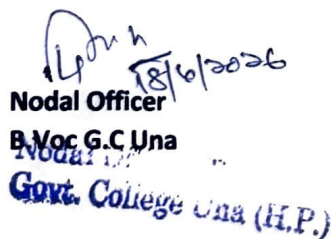 18/6/2026
Nodal Officer
B.Voc G.C Una
Nodal
Govt. College Una (H.P.)